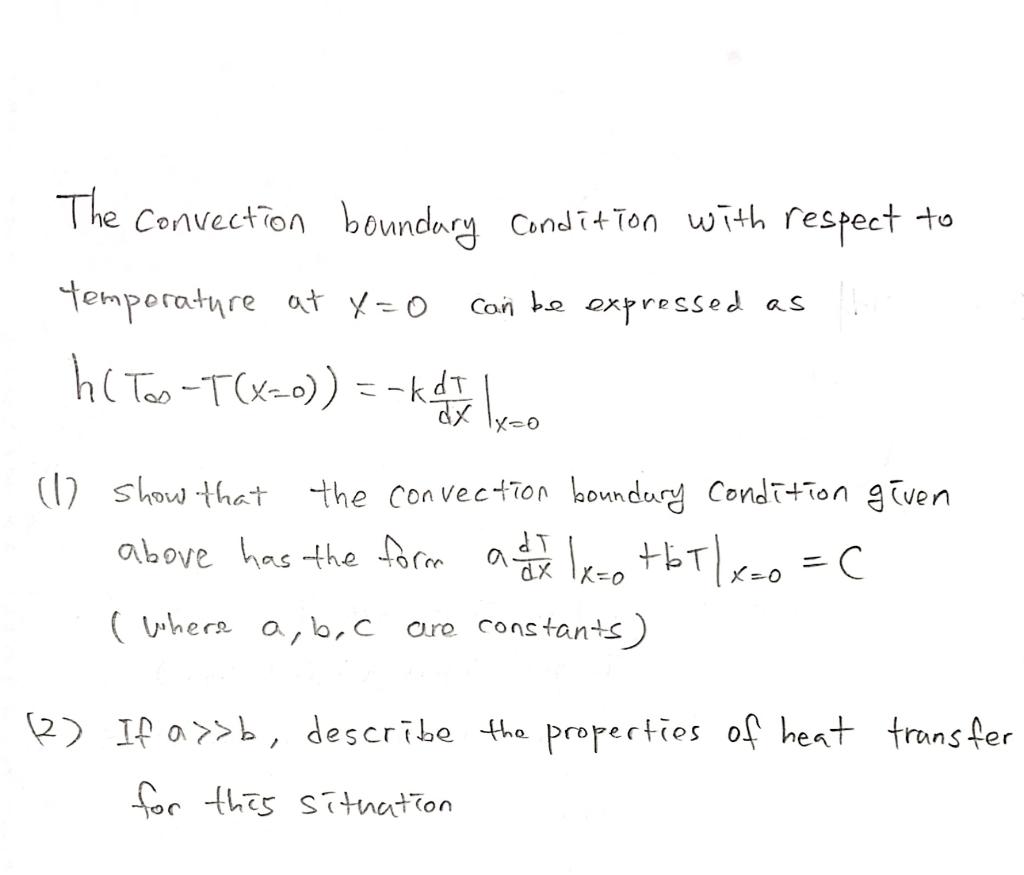 The convection boundary condition with respect to
temperature at x=0 can be expressed as
h(T∞-T(x=0)) = -k dT/dx |x=0
(1) show that the convection boundary condition given
above has the form a dT/dx |x=0 +bT|x=0 = C
(where a, b, c are constants)
(2) If a>>b, describe the properties of heat transfer
for this situation